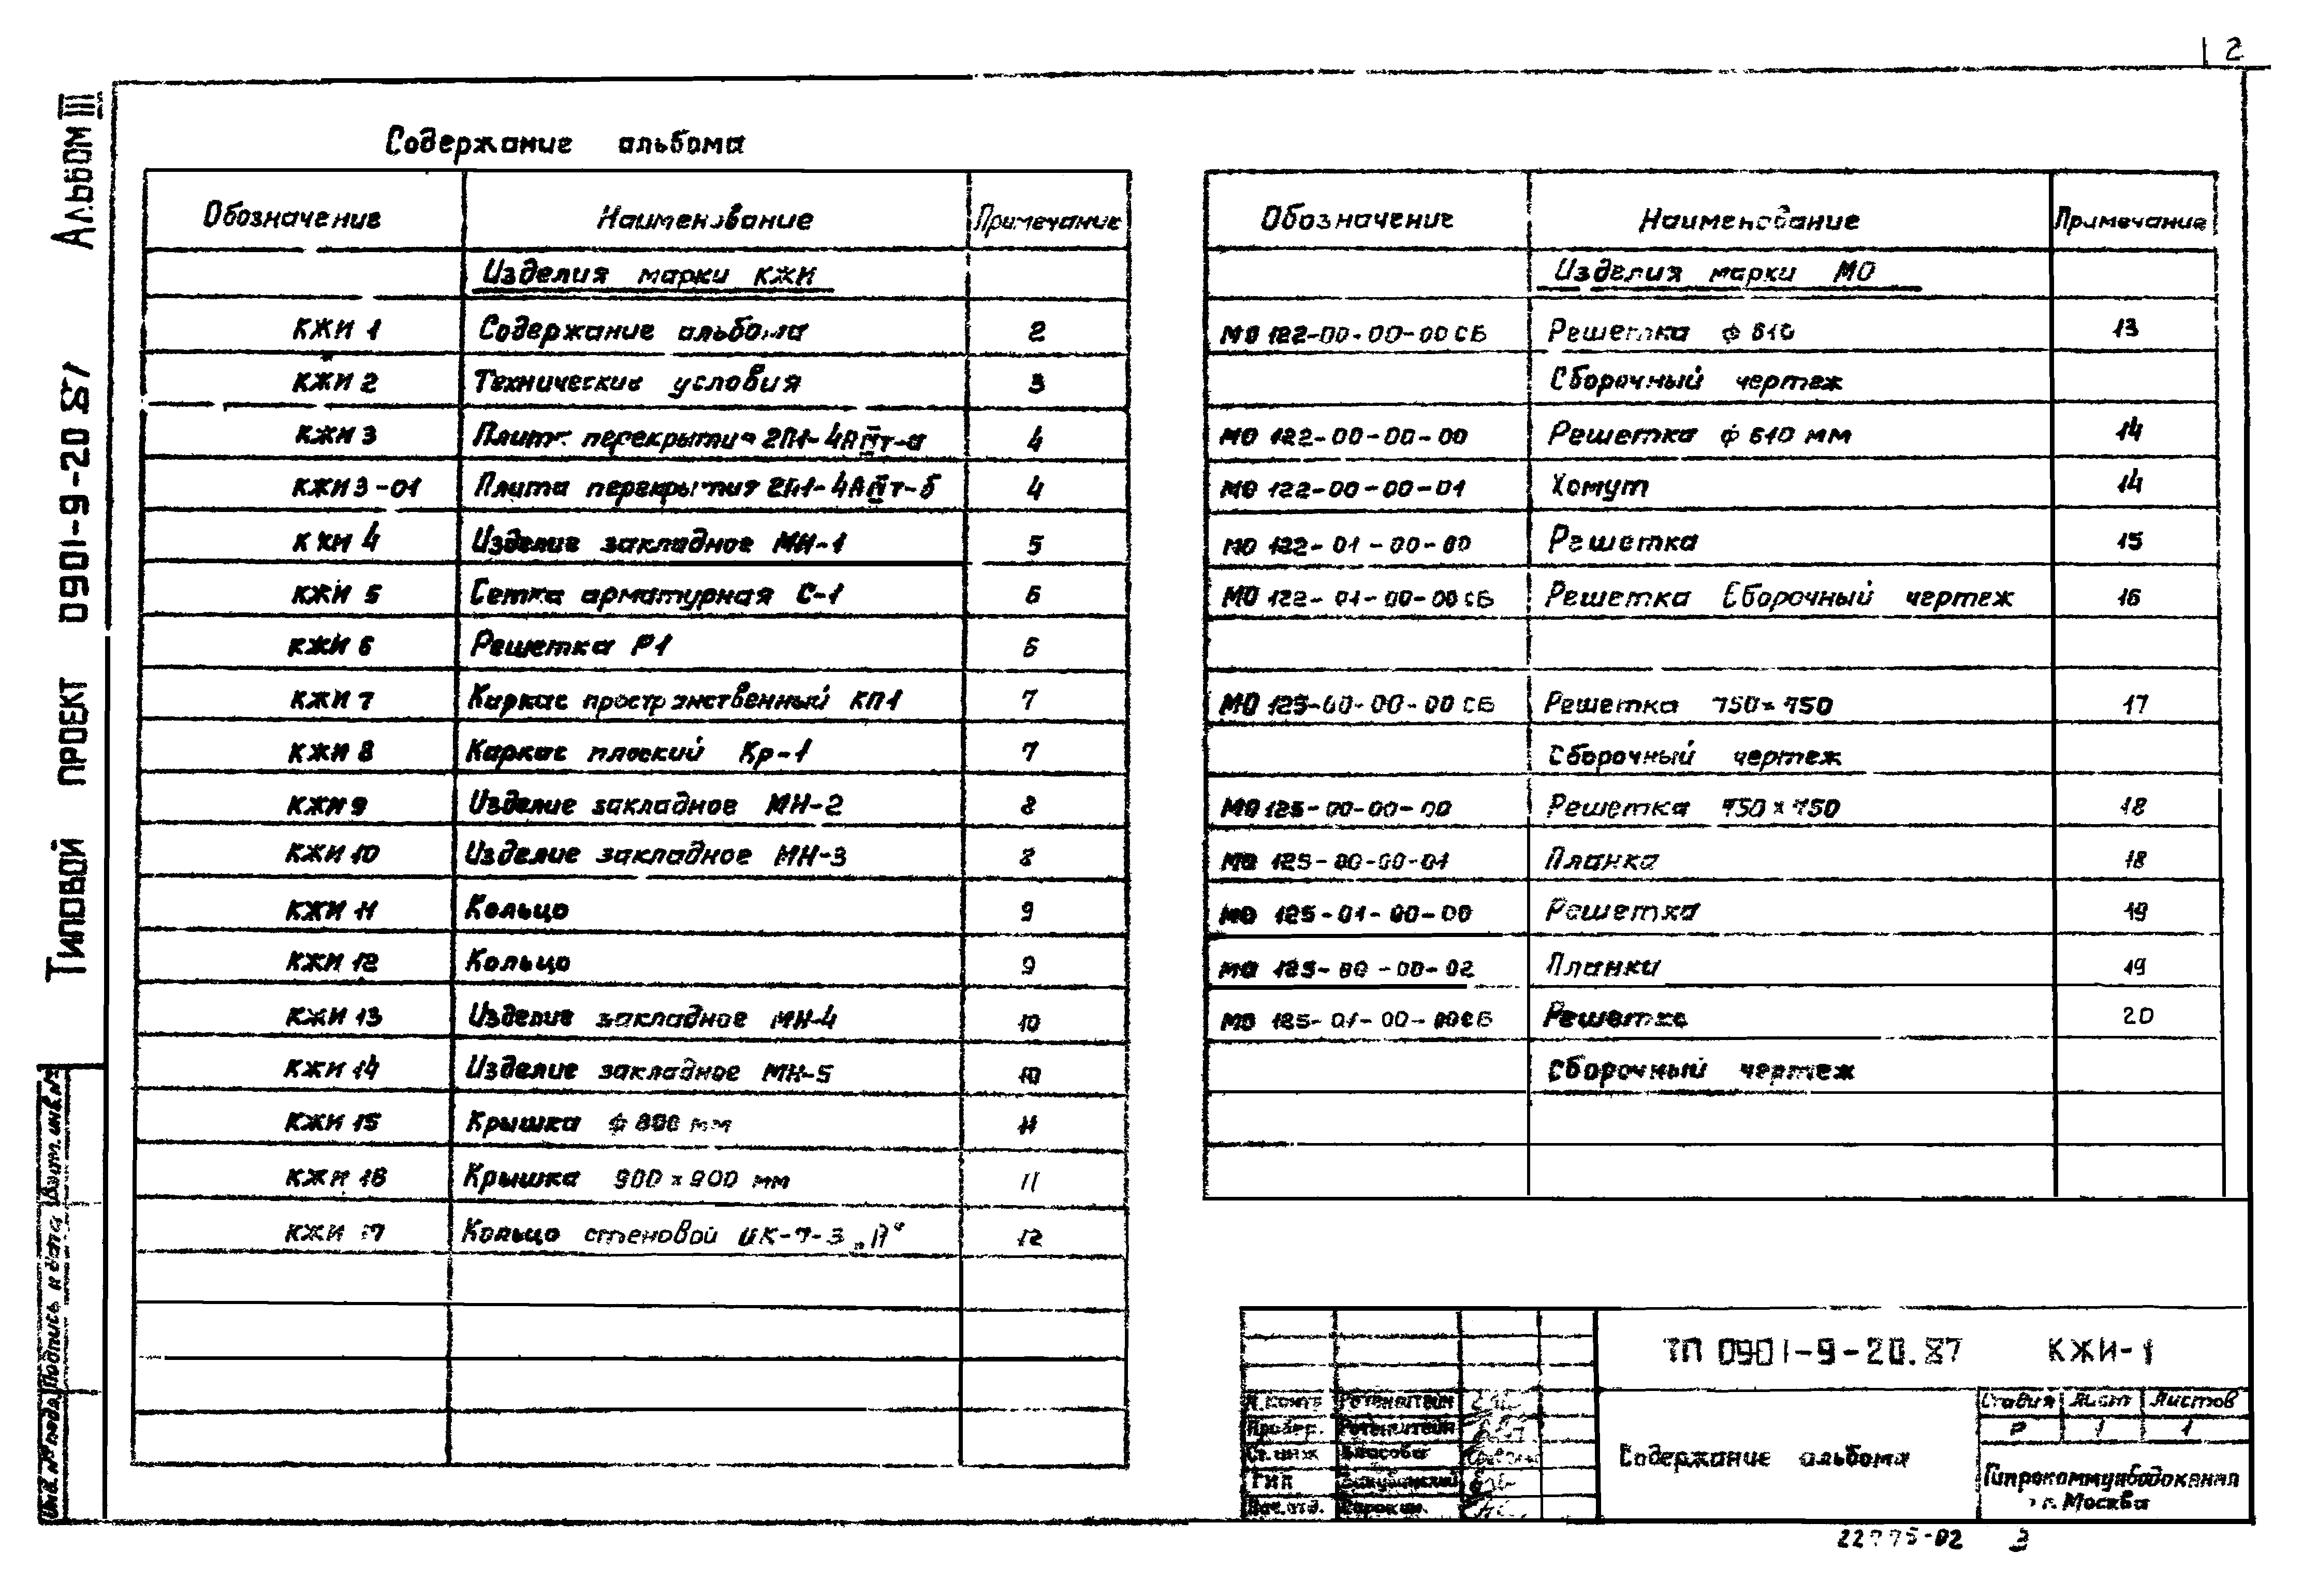 2
Альбом III
Типовой проект 0901-9-20.87
Содержание альбома
Обозначение Наименование Примечание
Изделия марки КЖИ
КЖИ 1 Содержание альбома 2
КЖИ 2 Технические условия 3
КЖИ 3 Плита перекрытия 2П1-4АIIIт-а 4
КЖИ 3-01 Плита перекрытия 2П1-4АIIIт-б 4
КЖИ 4 Изделие закладное МН-1 5
КЖИ 5 Сетка арматурная С-1 6
КЖИ 6 Решетка Р1 6
КЖИ 7 Каркас пространственный КП1 7
КЖИ 8 Каркас плоский Кр-1 7
КЖИ 9 Изделие закладное МН-2 8
КЖИ 10 Изделие закладное МН-3 8
КЖИ 11 Кольцо 9
КЖИ 12 Кольцо 9
КЖИ 13 Изделие закладное МН-4 10
КЖИ 14 Изделие закладное МН-5 10
КЖИ 15 Крышка ф 800 мм 11
КЖИ 16 Крышка 900×900 мм 11
КЖИ 17 Кольцо стеновой ЦК-7-3 „А“ 12
Обозначение Наименование Примечание
Изделия марки МО
МО 122-00-00-00 СБ Решетка ф 610 13
Сборочный чертеж
МО 122-00-00-00 Решетка ф 610 мм 14
МО 122-00-00-01 Хомут 14
МО 122-01-00-00 Решетка 15
МО 122-01-00-00 СБ Решетка Сборочный чертеж 16
МО 125-00-00-00 СБ Решетка 750×750 17
Сборочный чертеж
МО 125-00-00-00 Решетка 750×750 18
МО 125-00-00-01 Планка 18
МО 125-01-00-00 Решетка 19
МО 125-00-00-02 Планка 19
МО 125-01-00-00СБ Решетка 20
Сборочный чертеж
Инв. № подл. Подпись и дата Взам. инв. №
ТП 0901-9-20.87 КЖИ-1
Н.контр Ротенштейн
Провер. Ротенштейн
Ст.инж Власова
ГИП
Нач.отд. Сорокин.
Содержание альбома
Стадия Лист Листов
Р 1 1
Гипрокоммунводоканал
г. Москва
22775-02 3